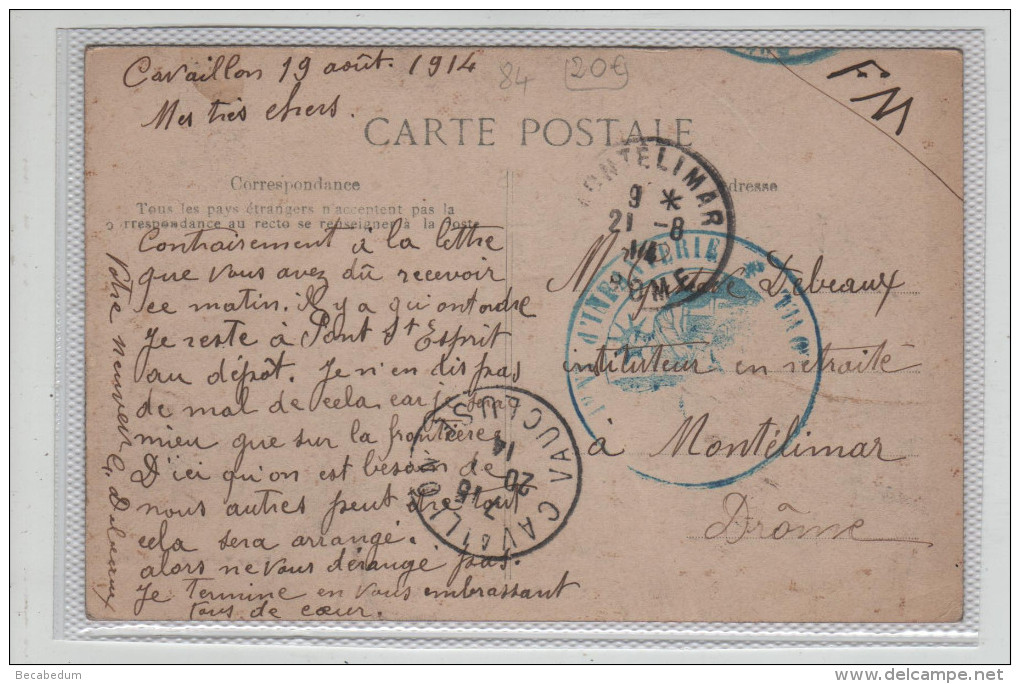 Cavaillon 19 août. 1914
84
20€
FM
Mes très chers.
CARTE POSTALE
Correspondance
dresse
Tous les pays étrangers n'acceptent pas la
correspondance au recto se renseigner à la Poste
MONTELIMAR
9 *
21 -8
14
DROME
D'INFANTERIE
Contrairement à la lettre
que vous avez dû recevoir
ce matin. Il y a qu'on ordre
Je reste à Pont St Esprit
au dépôt. Je n'en dis pas
de mal de cela car je serai
mieu que sur la frontières
D'ici qu'on est besoin de
nous autres peut être tout
cela sera arrangé.
alors ne vous dérangé pas.
Je termine en vous embrassant
tous de cœur.
votre neuveu G. Debeaux
M Debeaux
instituteur en retraité
à Montélimar
Drôme
CAVAILLON VAUCLUSE
7 15
20
14
Becabedum
www.delcampe.net